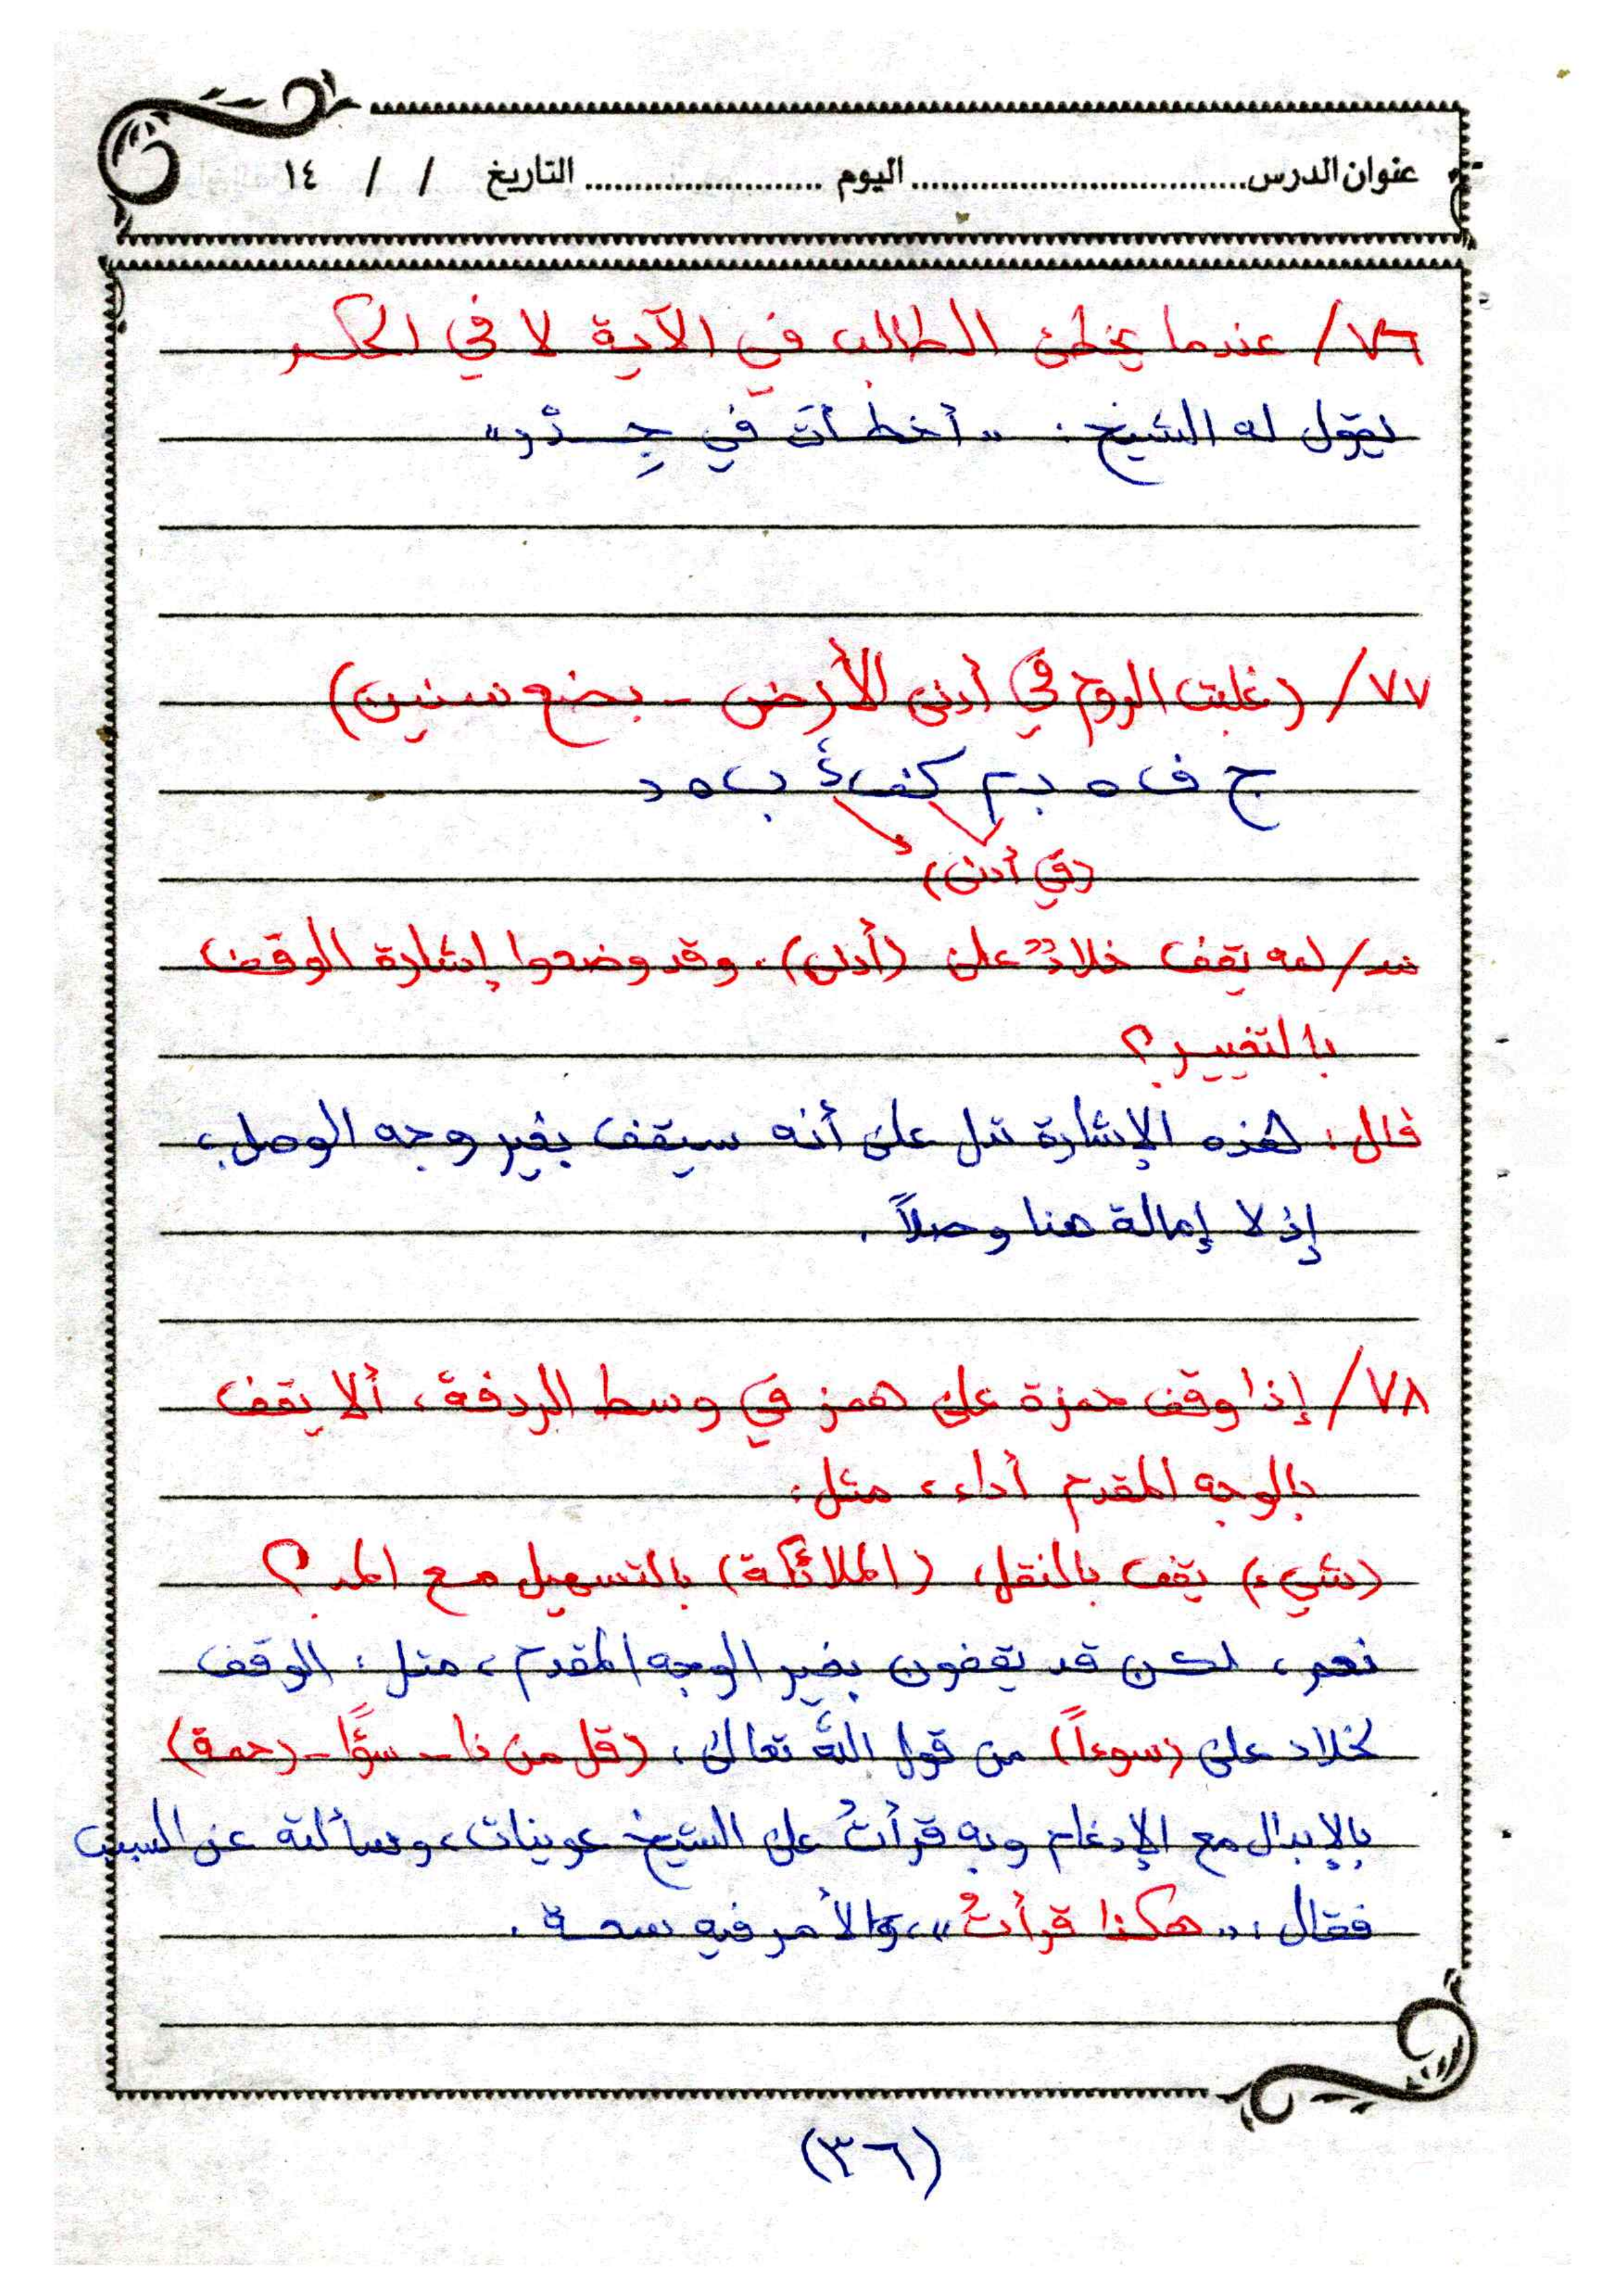 عنوان الدرس................................. اليوم ........................ التاريخ / / ١٤
٧٦/ عندما يخطئ الطالب في الآية لا في الحكم
يقول له الشيخ: «أخطأتَ في جِـذْر»
٧٧/ (غلبت الروم في أدنى الأرض - بضع سنين)
ج ف ه ب
(في أدنى)
س/ لمه يقف خلادٌ على (أدنى). وقد وضعوا إشارة الوقف
بالتغيير؟
قال: هذه الإشارة تدل على أنه سيقف بغير وجه الوصل،
إذ لا إمالة هنا وصلاً.
٧٨/ إذا وقف حمزة على همز في وسط الردفة، ألا يقف
بالوجه المقدم أداء، مثل:
(شيء) يقف بالنقل، (الملائكة) بالتسهيل مع المد؟
نعم، لكن قد يقفون بغير الوجه المقدم، مثل: الوقف
لخلاد على (سوءاً) من قول الله تعالى، (قل من ذا - سوًّا - رحمة)
بالإبدال مع الإدغام وبه قرأتُ على الشيخ عوينات، وسألته عن السبب
فقال: «هكذا قرأتُ»، والأمر فيه سعة.
(٣٦)